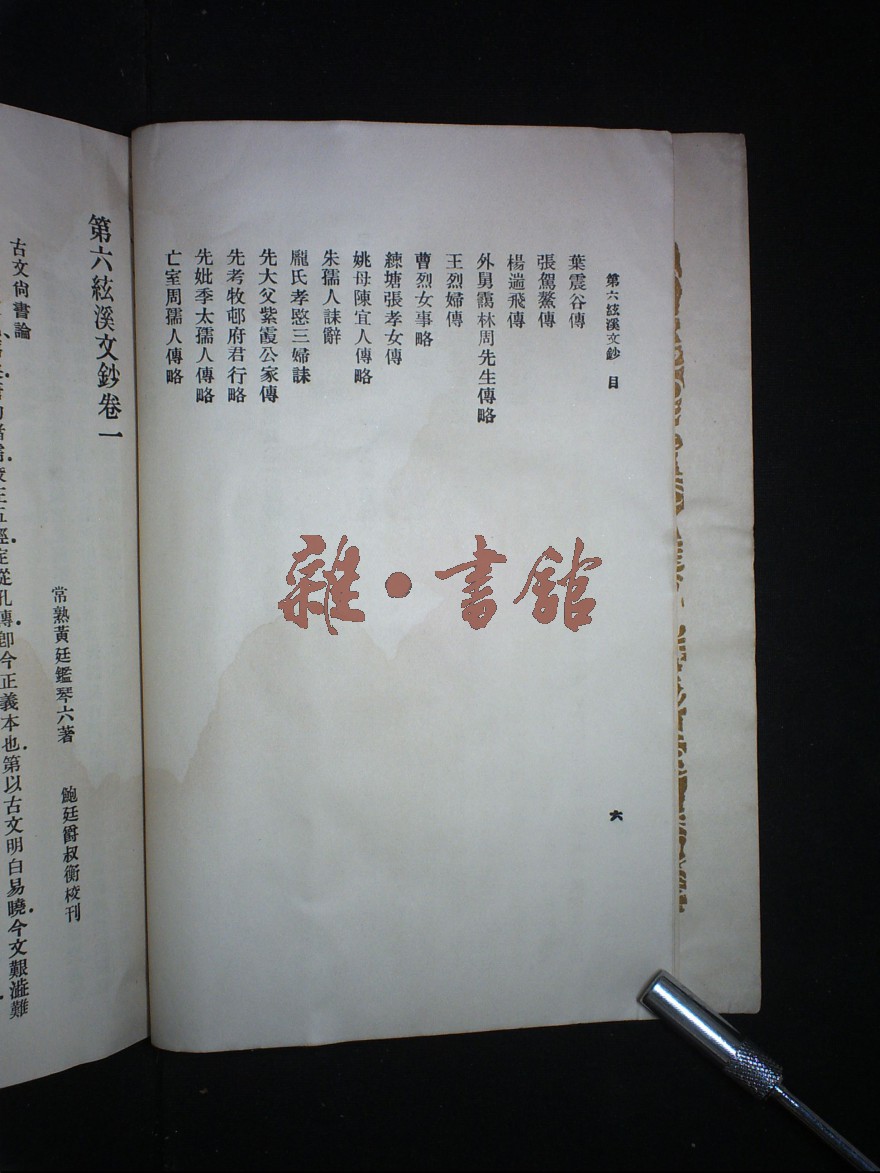 第六絃溪文鈔 目
葉震谷傳
張駕鰲傳
楊遄飛傳
外舅靄林周先生傳略
王烈婦傳
曹烈女事略
練塘張孝女傳
姚母陳宜人傳略
朱孺人誄辭
龐氏孝愍三婦誄
先大父紫霞公家傳
先考牧邨府君行略
先妣季太孺人傳略
亡室周孺人傳略
六
第六絃溪文鈔卷一
常熟黃廷鑑琴六著 鮑廷爵叔衡校刊
古文尙書論
從孔傳卽今正義本也第以古文明白易曉今文艱澁難
雜·書館